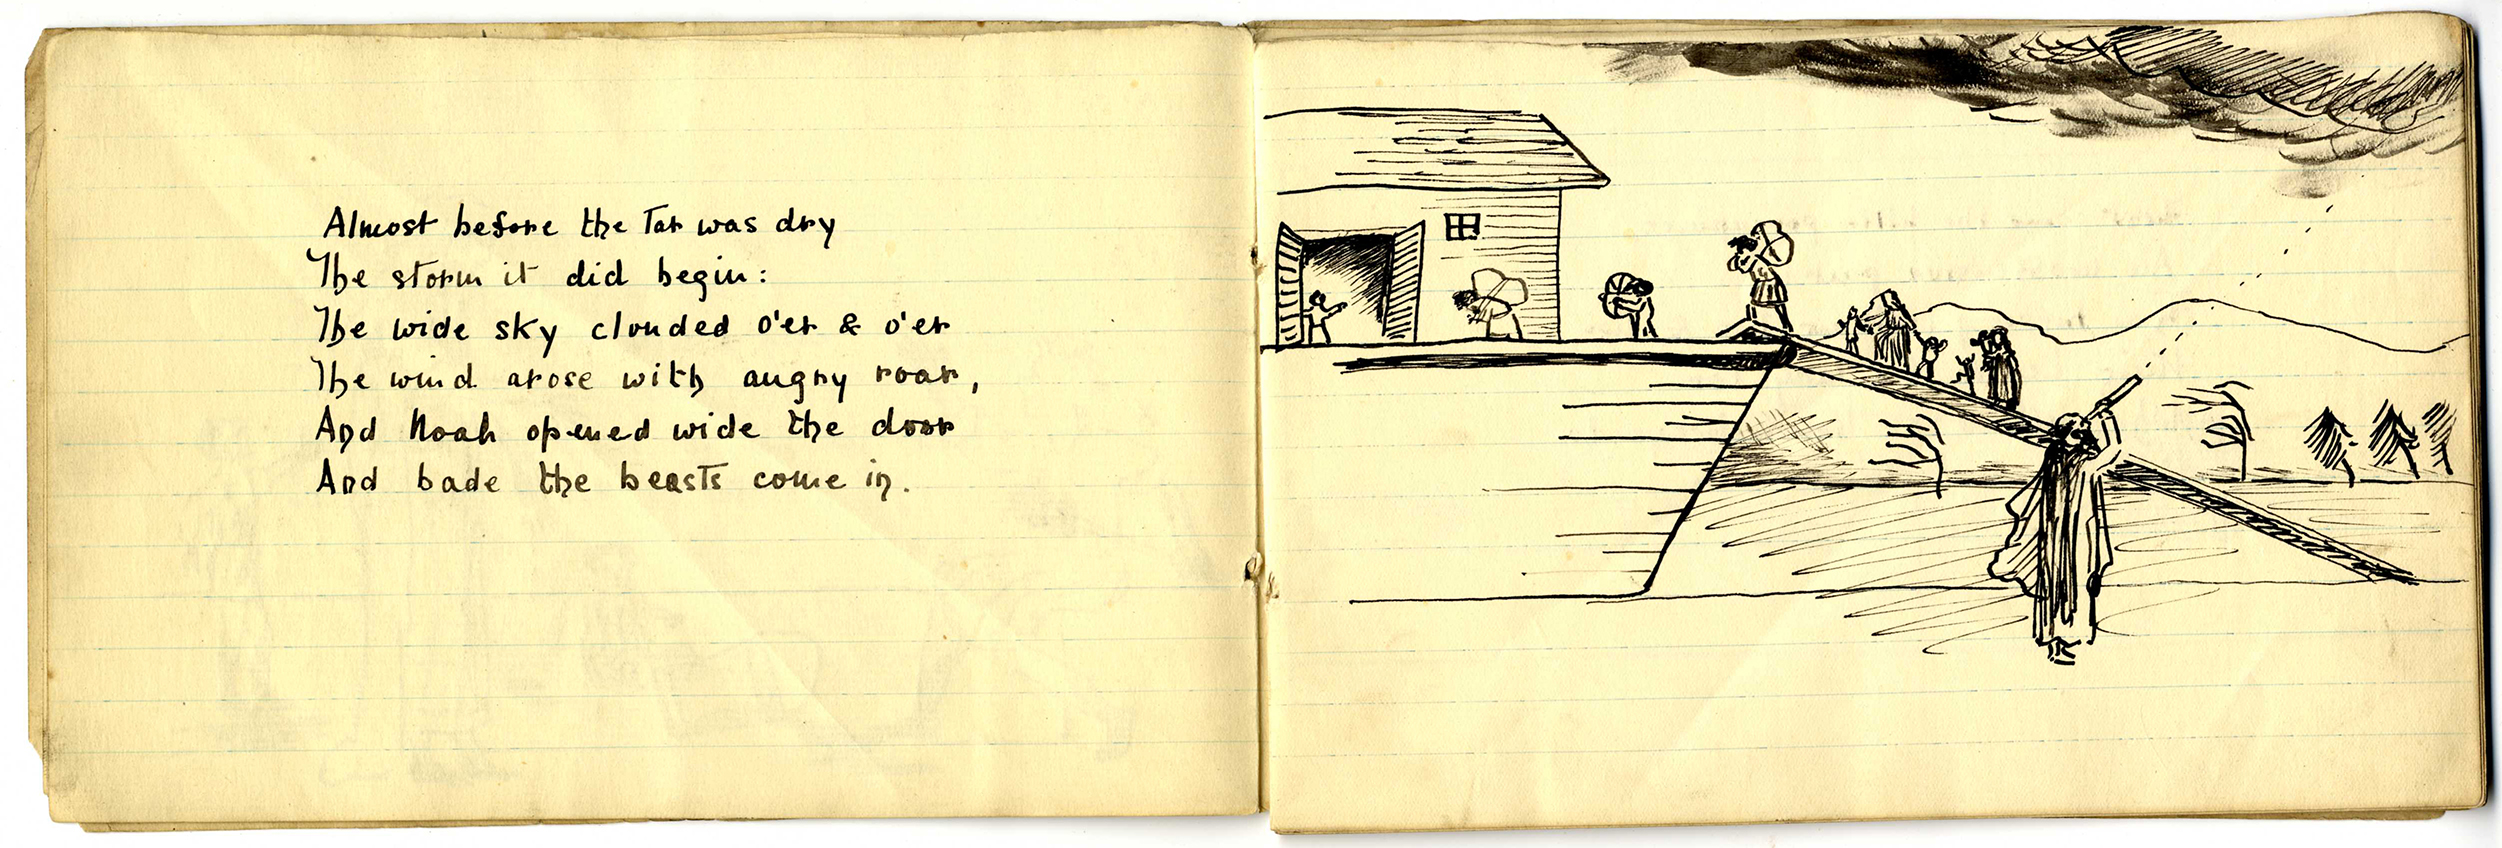 Almost before the Tar was dry
The storm it did begin:
The wide sky clouded o'er & o'er
The wind arose with angry roar,
And Noah opened wide the door
And bade the beasts come in.